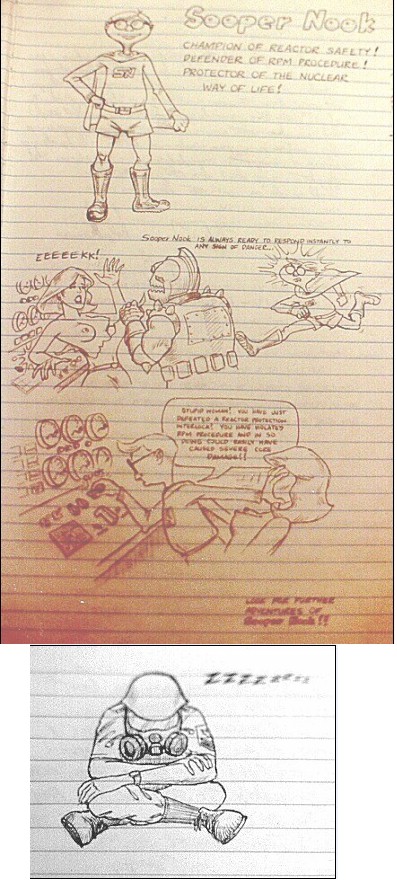 Sooper Nook
CHAMPION OF REACTOR SAFETY!
DEFENDER OF RPM PROCEDURE!
PROTECTOR OF THE NUCLEAR
WAY OF LIFE!
SN
SOOPER NOOK IS ALWAYS READY TO RESPOND INSTANTLY TO
ANY SIGN OF DANGER...
EEEEEKK!
STUPID WOMAN! YOU HAVE JUST
DEFEATED A REACTOR PROTECTION
INTERLOCK! YOU HAVE VIOLATED
RPM PROCEDURE AND IN SO
DOING COULD EASILY HAVE
CAUSED SEVERE CORE
DAMAGE!!
LOOK FOR FURTHER
ADVENTURES OF
Sooper Nook!!
ZZZZzzzz